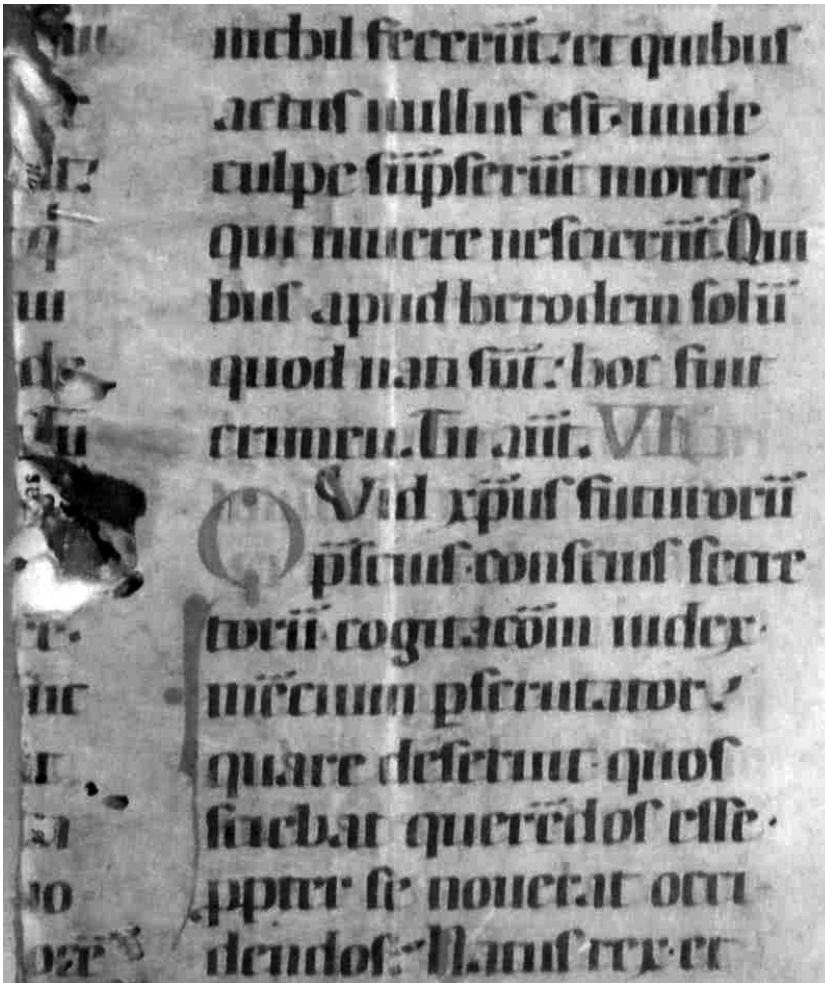 nichil fecerūt: et quibus
actus nullus est. unde
culpe sūpserūt mortē
qui uiuere nescierūt. Qui
bus apud herodem solū
quod nati sūt: hoc fuit
crimen. Tu aūt. VII
QVid xp̄us futurorū
p̄scius. conscius secre
torū. cogitacōm iudex.
mēcium ꝑscrutator.
quare deseruit quos
sciebat querēdos esse.
ꝓpter se nouerat occi
dendos. Natus rex. et